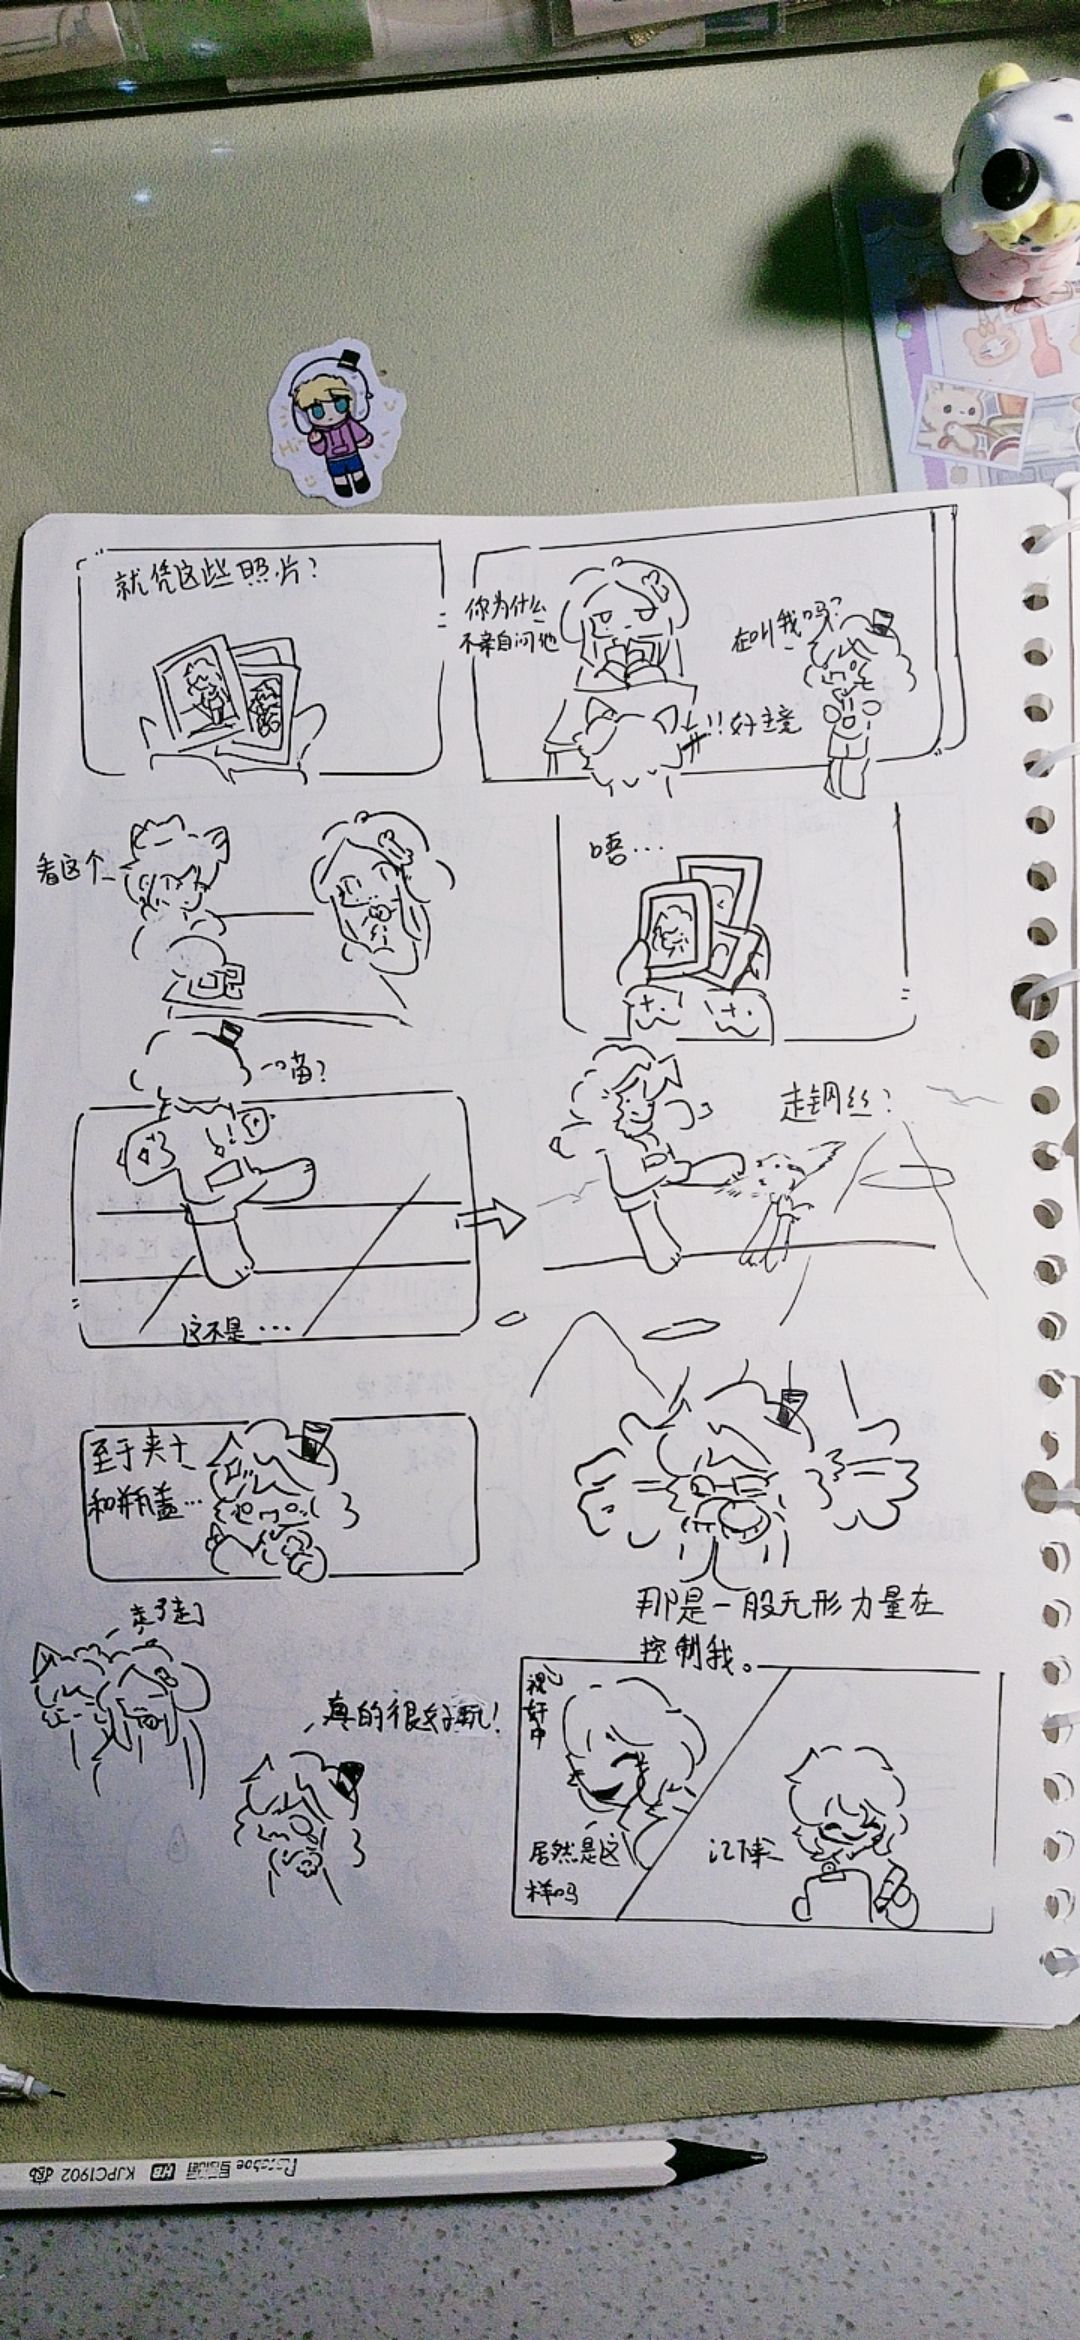 就凭这些照片?
你为什么
不亲自问他
在叫我吗?
!!好主意
看这个
唔...
喵?
这不是...
走钢丝?
至于夹子
和瓶盖...
那是一股无形力量在
控制我。
走了走了
真的很好玩!
视奸中
居然是这
样吗
记下来
Hi
KJPC1902
HB